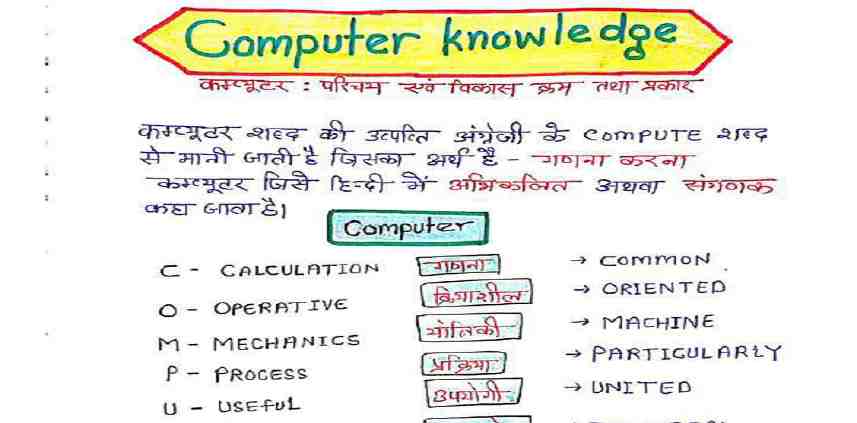 Computer knowledge
कम्प्यूटर : परिचय एवं विकास क्रम तथा प्रकार
कम्प्यूटर शब्द की उत्पत्ति अंग्रेजी के COMPUTE शब्द
से मानी जाती है जिसका अर्थ है - गणना करना
कम्प्यूटर जिसे हिन्दी में अभिकलित्र अथवा संगणक
कहा जाता है।
Computer
C - CALCULATION गणना → COMMON
O - OPERATIVE क्रियाशील → ORIENTED
M - MECHANICS यांत्रिकी → MACHINE
P - PROCESS प्रक्रिया → PARTICULARLY
U - USEFUL उपयोगी → UNITED